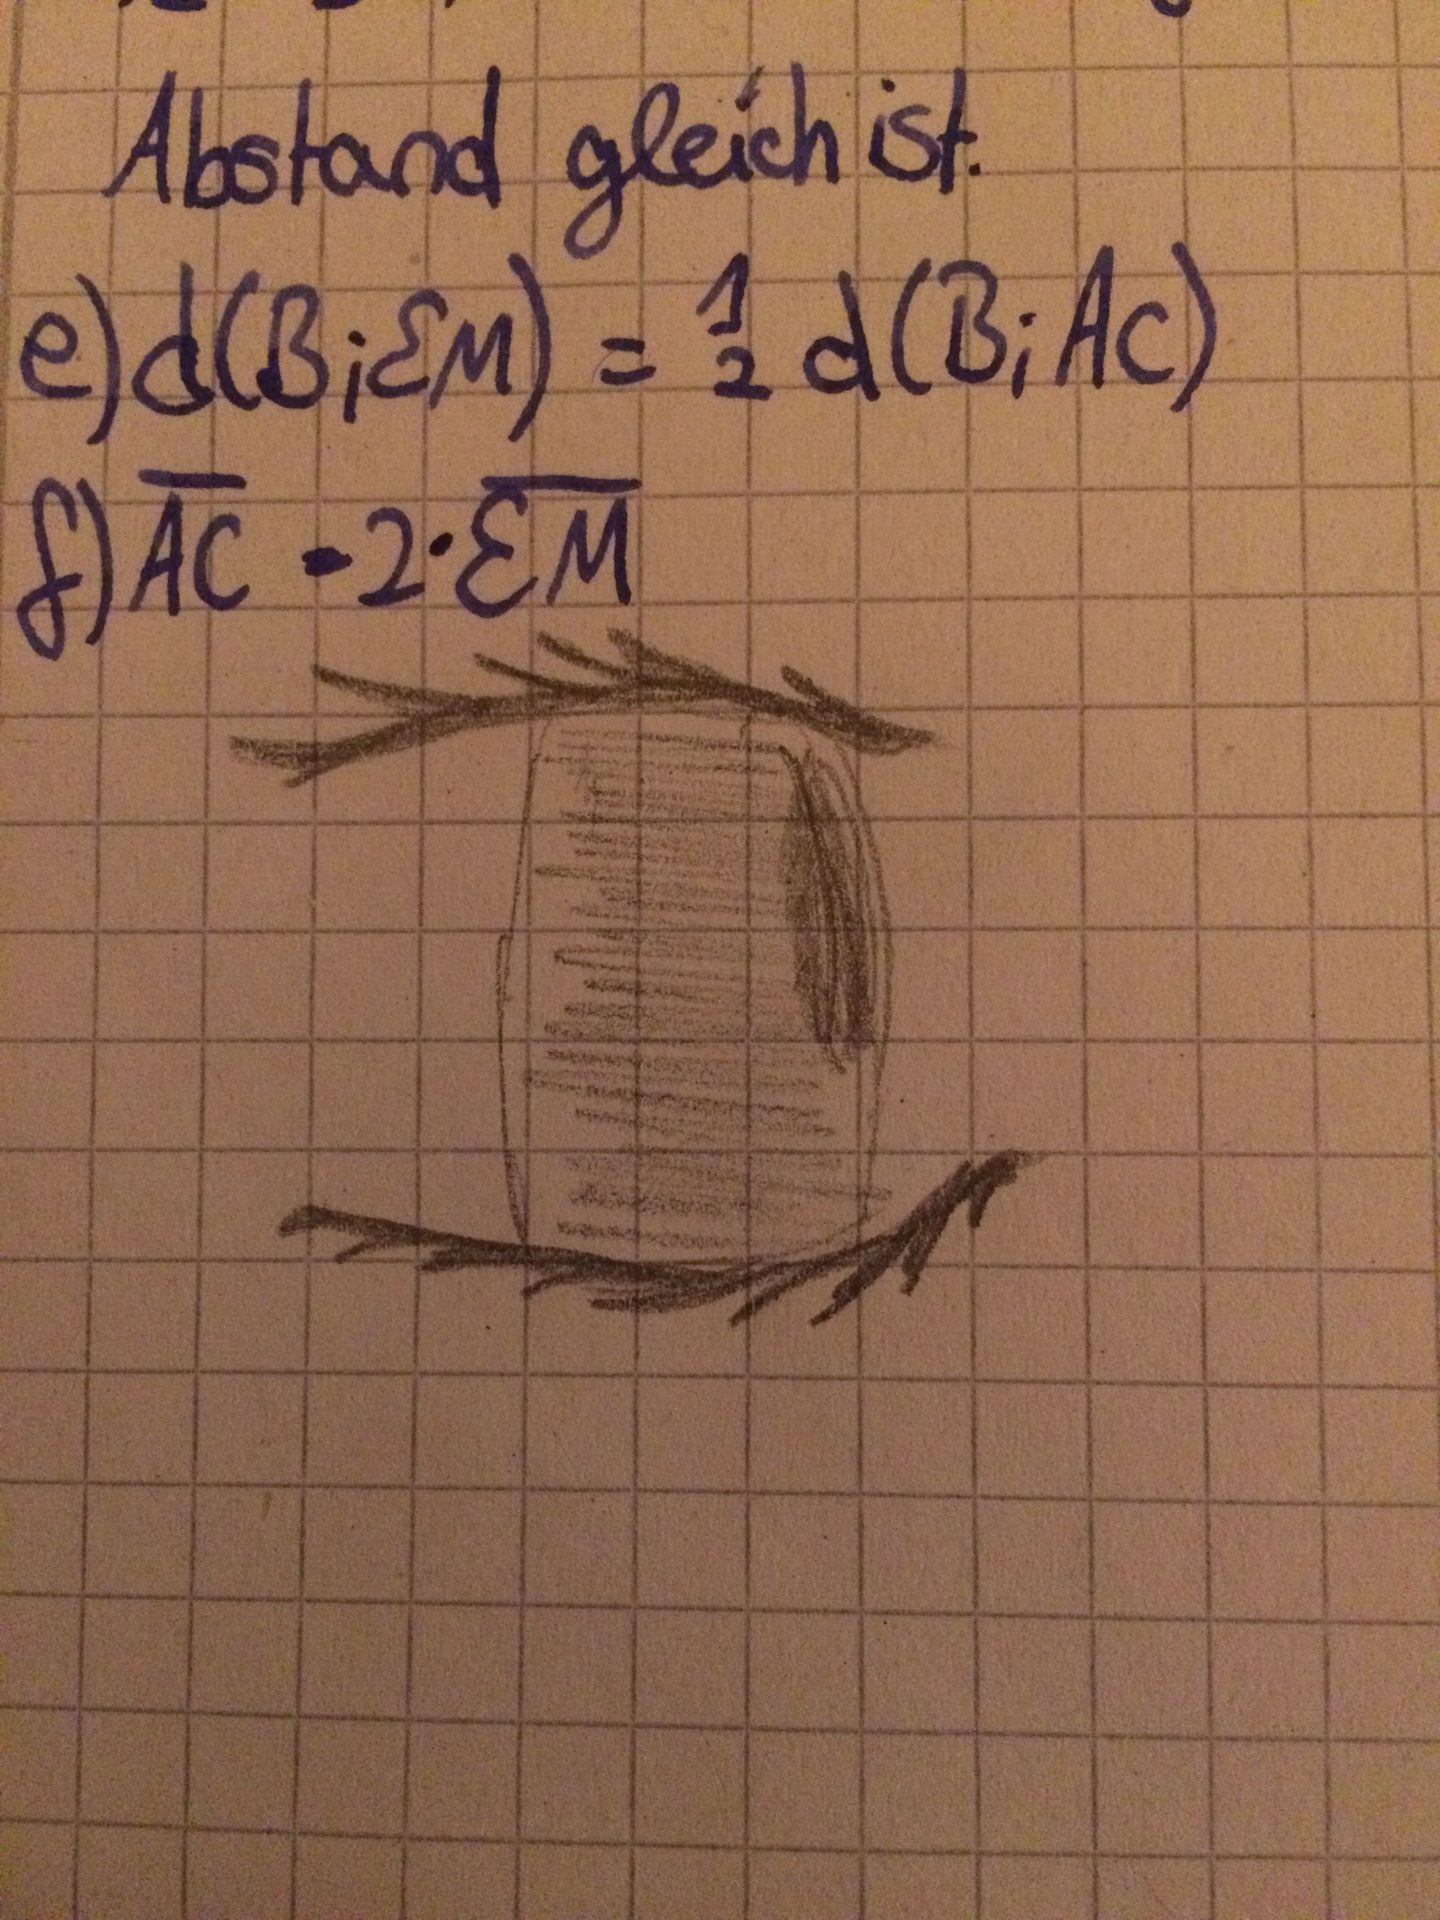 Abstand gleich ist.
e) d(B; EM) = 1/2 d(B; AC)
f) A̅C̅ = 2·E̅M̅